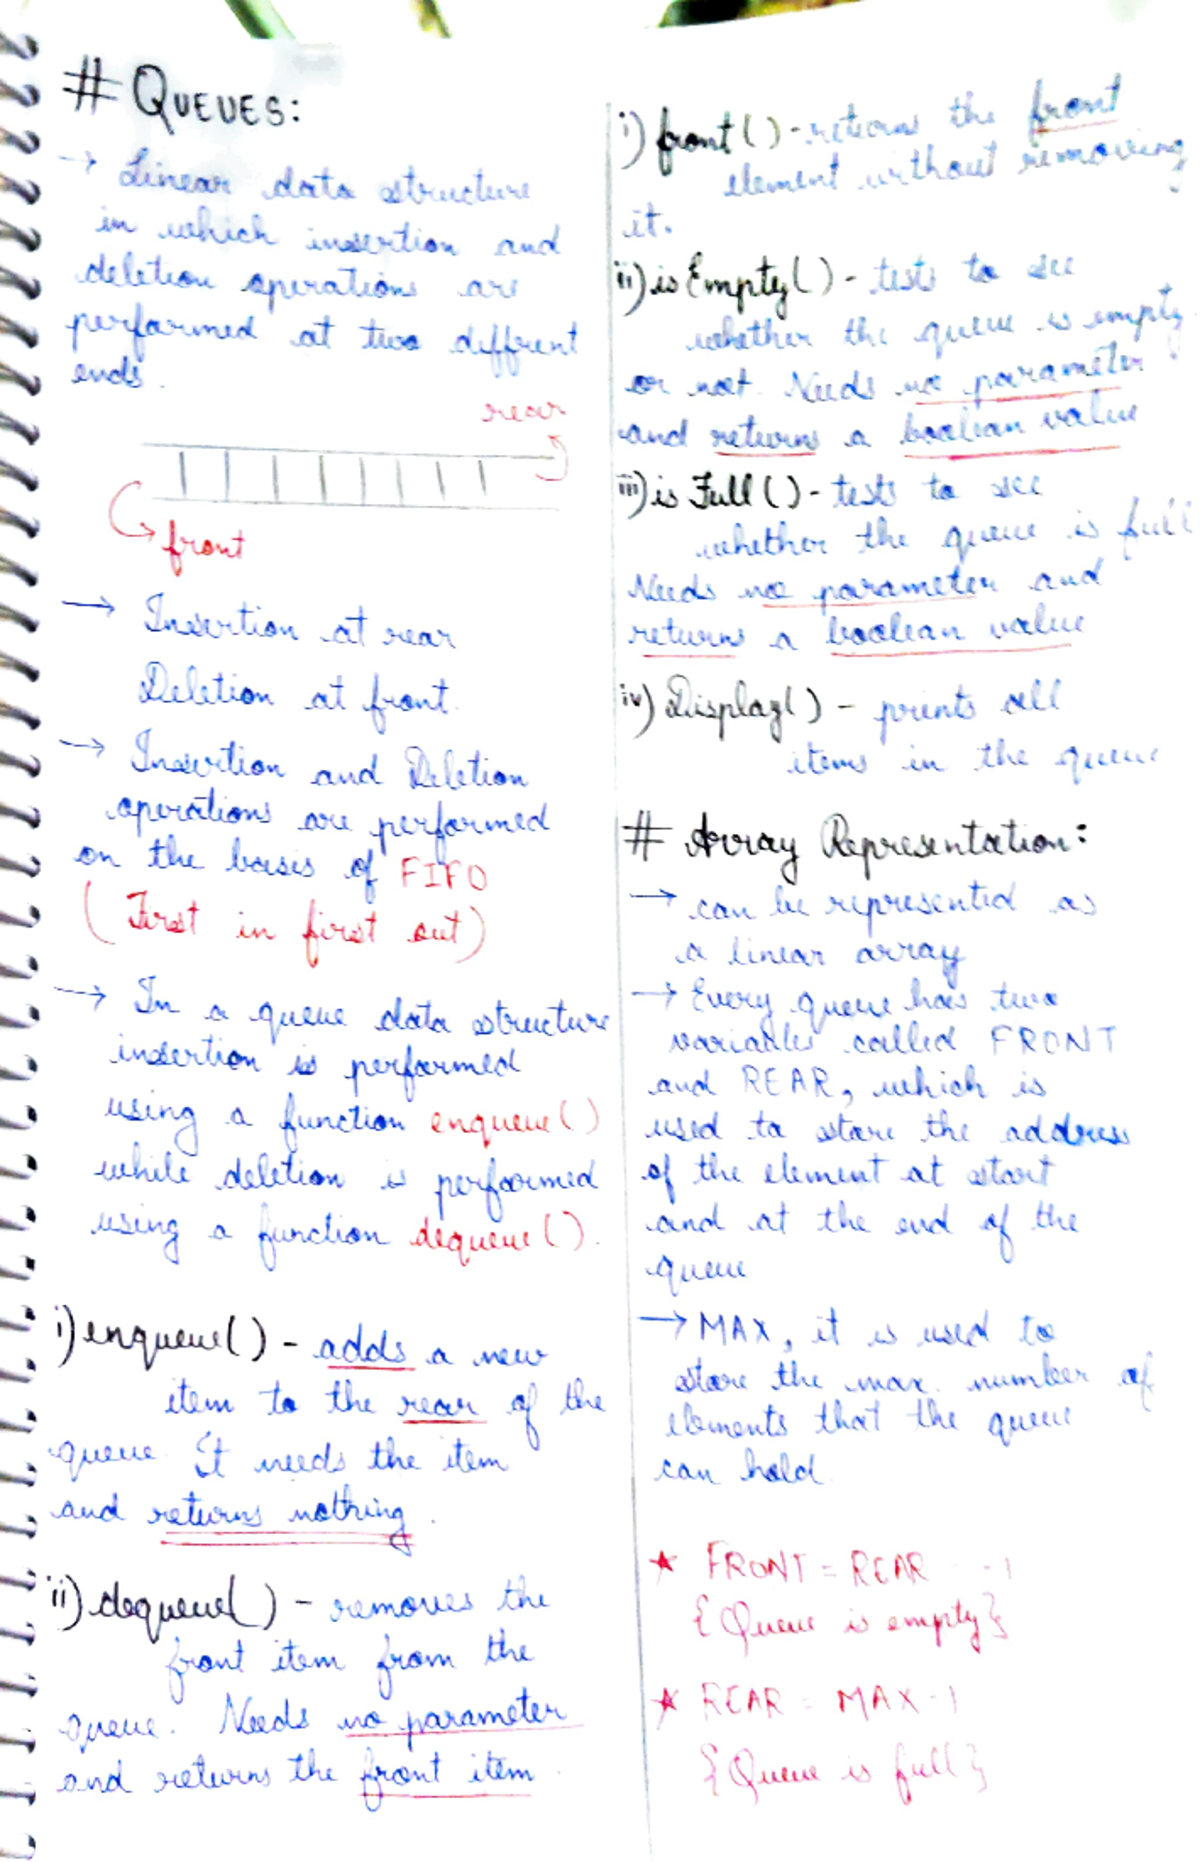 # QUEUES:
→ Linear data structure
in which insertion and
deletion operations are
performed at two diffrent
ends.
rear
front
→ Insertion at rear
Deletion at front.
→ Insertion and Deletion
operations are performed
on the basis of FIFO
( First in first out)
→ In a queue data structure
insertion is performed
using a function enqueue()
while deletion is performed
using a function dequeue().
i) enqueue() - adds a new
item to the rear of the
queue. It needs the item
and returns nothing.
ii) dequeue() - removes the
front item from the
queue. Needs no parameter
and returns the front item.
i) front() - returns the front
element without removing
it.
ii) isEmpty() - tests to see
whether the queue is empty
or not. Needs no parameter
and returns a boolean value
iii) isFull() - tests to see
whether the queue is full
Needs no parameter and
returns a boolean value
iv) Display() - prints all
items in the queue
# Array Representation:
→ can be represented as
a linear array
→ Every queue has two
variables called FRONT
and REAR, which is
used to store the address
of the element at start
and at the end of the
queue
→ MAX, it is used to
store the max. number of
elements that the queue
can hold.
★ FRONT = REAR - -1
{Queue is empty}
★ REAR = MAX-1
{Queue is full}